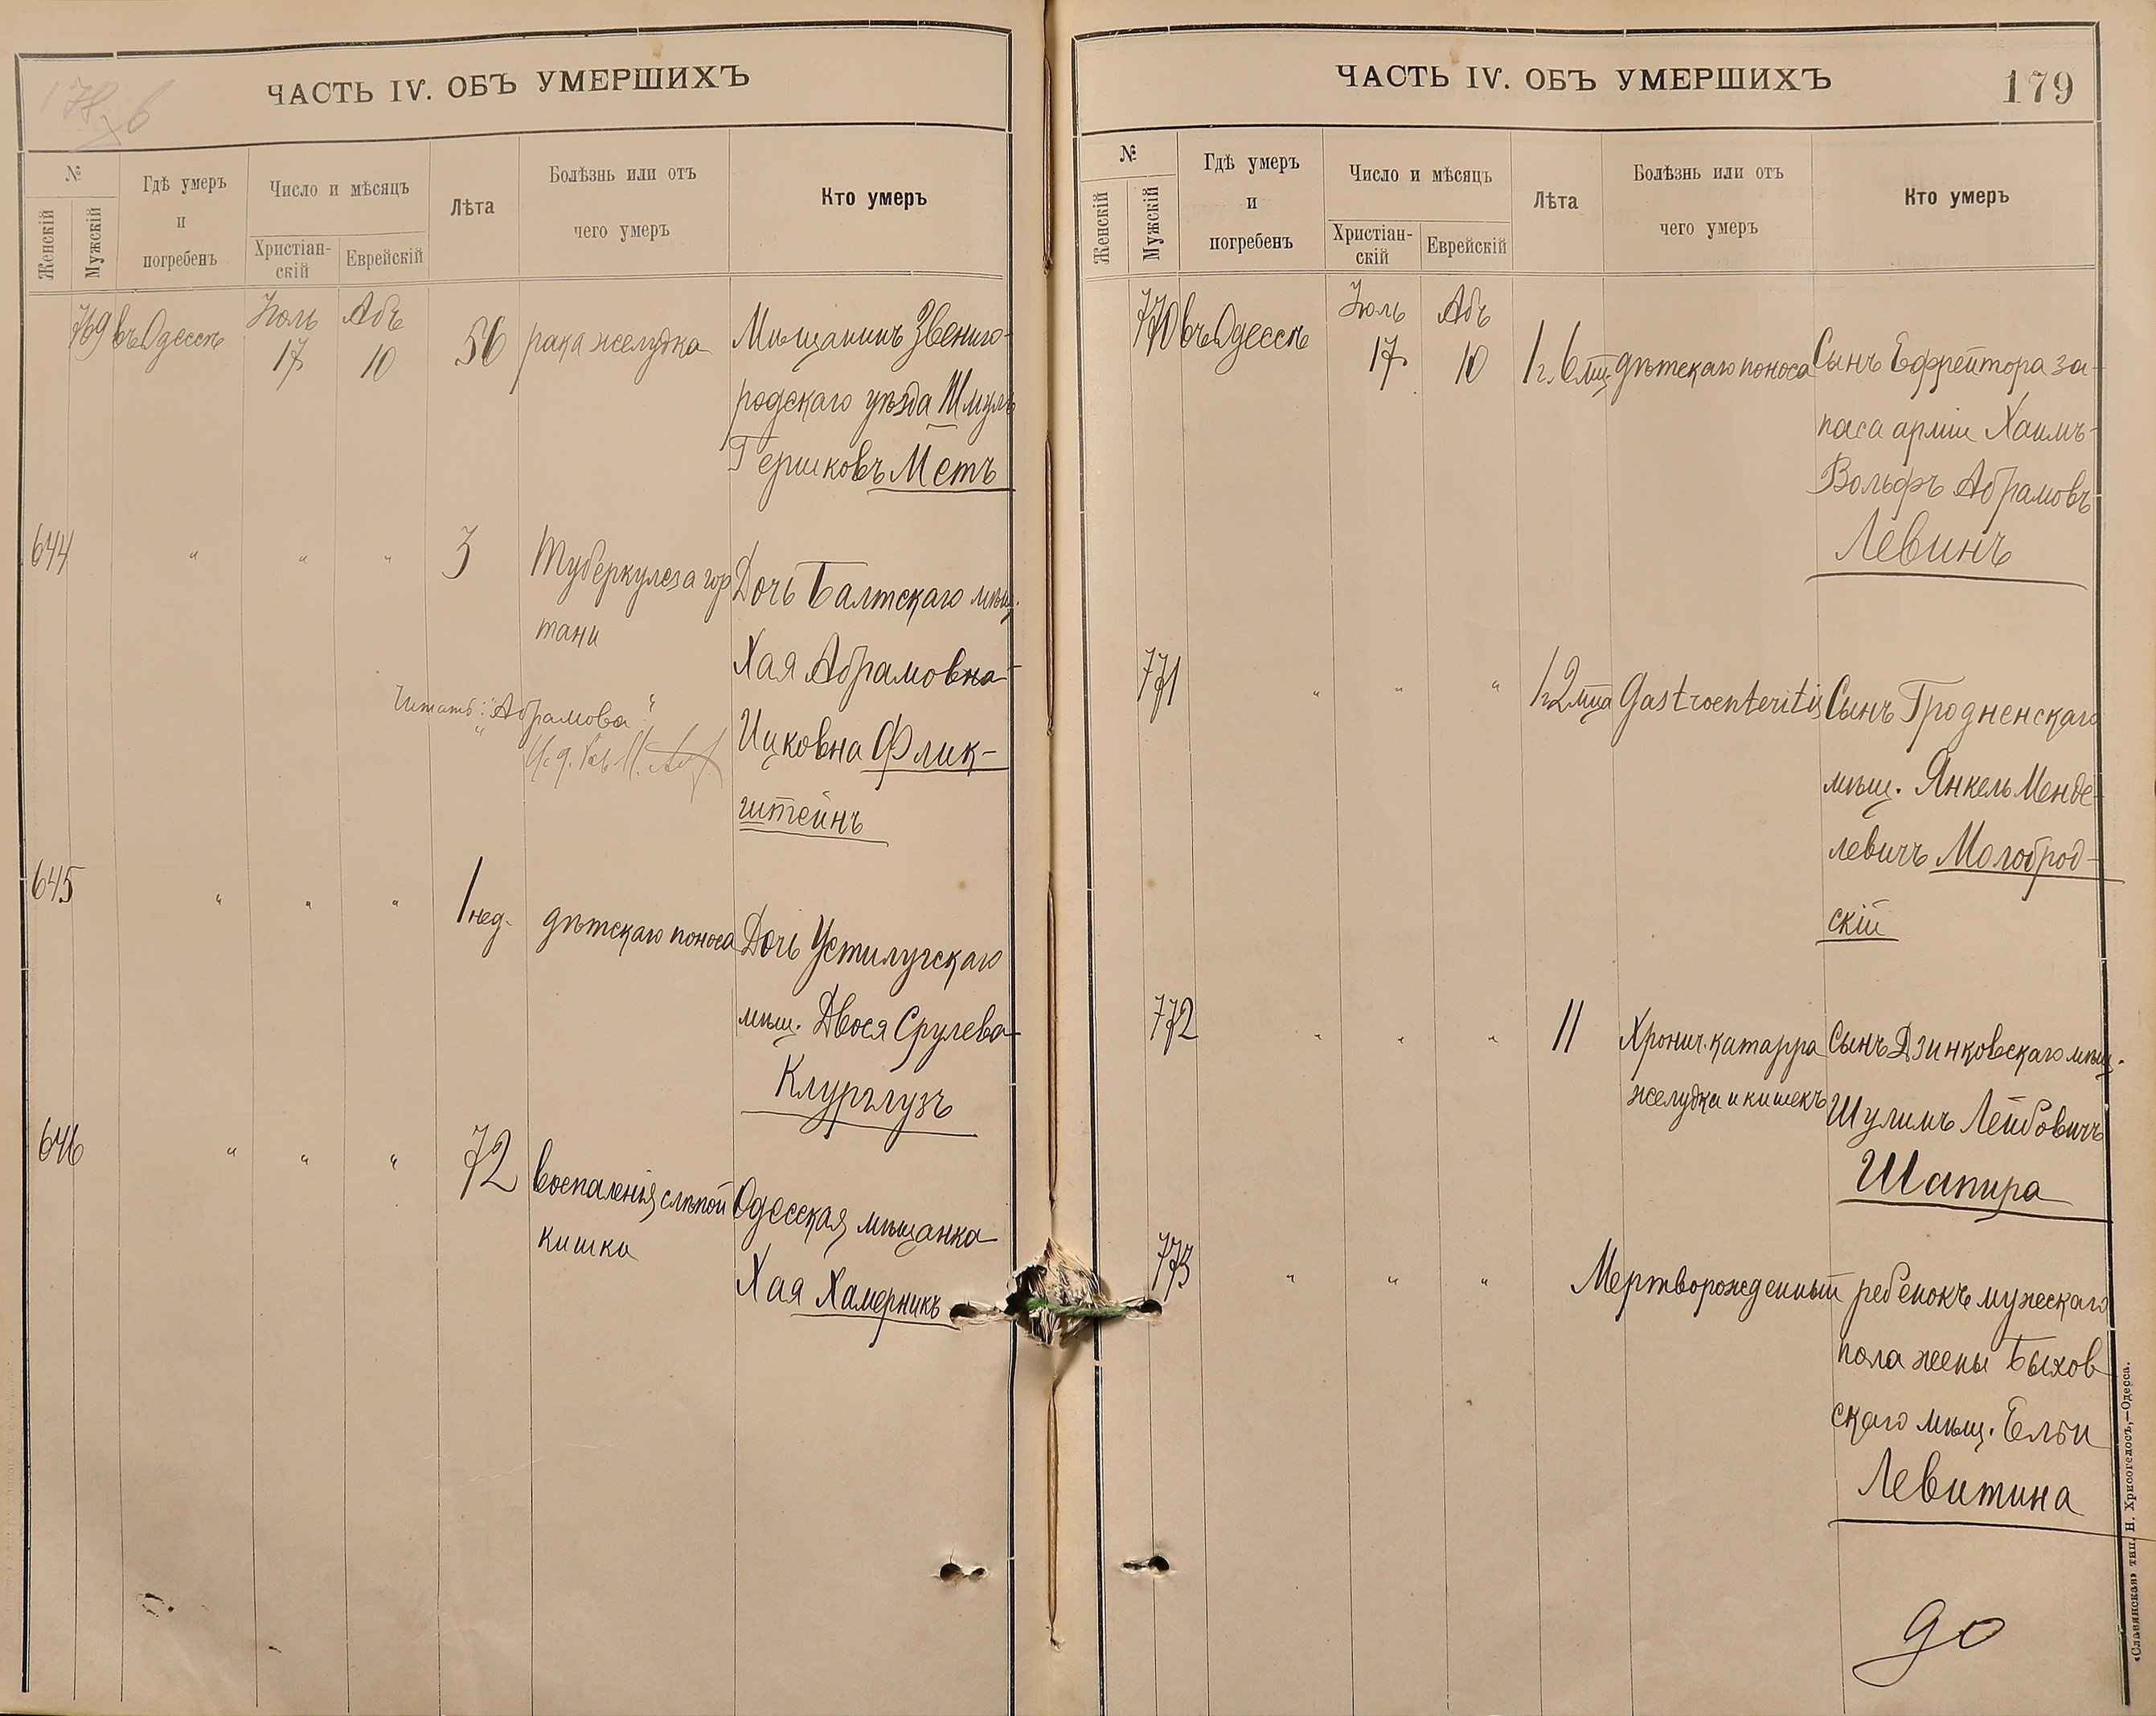 ЧАСТЬ IV. ОБЪ УМЕРШИХЪ
№
Женскій
Мужскій
Гдѣ умеръ
и
погребенъ
Число и мѣсяцъ
Христіан-
скій
Еврейскій
Лѣта
Болѣзнь или отъ
чего умеръ
Кто умеръ
769 въ Одессѣ Іюль 17 Абъ 10 56 рака желудка Мѣщанинъ Звениго-
родскаго уѣзда Шмуль
Гершковъ Метъ
644 " " " 3 Туберкулеза гор Дочь Балтскаго мѣщ.
тани
Хая Абрамовна-
Читать: "Абрамова"
Ицковна Флик-
штейнъ
645 " " " 1 нед. дѣтскаго поноса Дочь Устилугскаго
мѣщ. Двося Срулева
Клурглузъ
646 " " " 72 воспаленія слѣпой Одесская мѣщанка
кишки
Хая Хамерникъ
ЧАСТЬ IV. ОБЪ УМЕРШИХЪ
179
№
Женскій
Мужскій
Гдѣ умеръ
и
погребенъ
Число и мѣсяцъ
Христіан-
скій
Еврейскій
Лѣта
Болѣзнь или отъ
чего умеръ
Кто умеръ
770 въ Одессѣ Іюль 17 Абъ 10 1 г. 6 мц. дѣтскаго поноса Сынъ Ефрейтора за-
паса арміи Хаимъ-
Вольфъ Абрамовъ
Левинъ
771 " " " 1 г 2 мца Gastroenteritis Сынъ Гродненскаго
мѣщ. Янкель Менде-
левичъ Молоброд-
скій
772 " " " 11 Хронич. катарра Сынъ Дзинковскаго мѣщ.
желудка и кишекъ Шулимъ Лейбовичъ
Шапира
773 " " " Мертворожденный ребенокъ мужескаго
пола жены Быхов
скаго мѣщ. Ельи
Левитина
до
«Славянская» тип. Н. Хрисогелосъ,—Одесса.